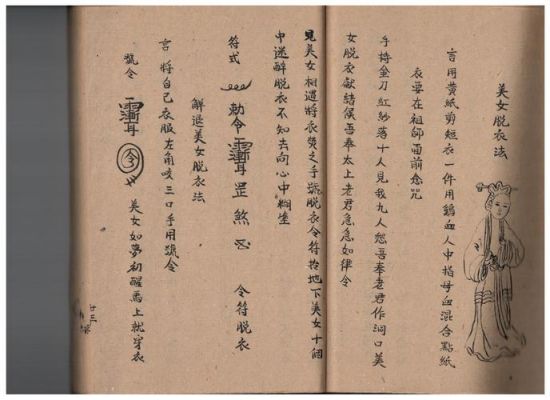 美女脱衣法
言用黄紙剪短衣一件用鷄血人中指母血混合點紙
衣要在祖師面前念咒
手持金刀紅紗落十人見我九人愁吾奉老君作洞口美
女脱衣獻結侯吾奉太上老君急急如律令
見美女相遇將衣焚之手號脱衣令符拾地下美女十個
中迷醉脱衣不知去向心中糊塗
符式 敕令 罡煞 令符脱衣
解退美女脱衣法
言將自己衣服左角咬三口手用號令
號令 令 美女如夢初醒馬上就穿衣
廿三